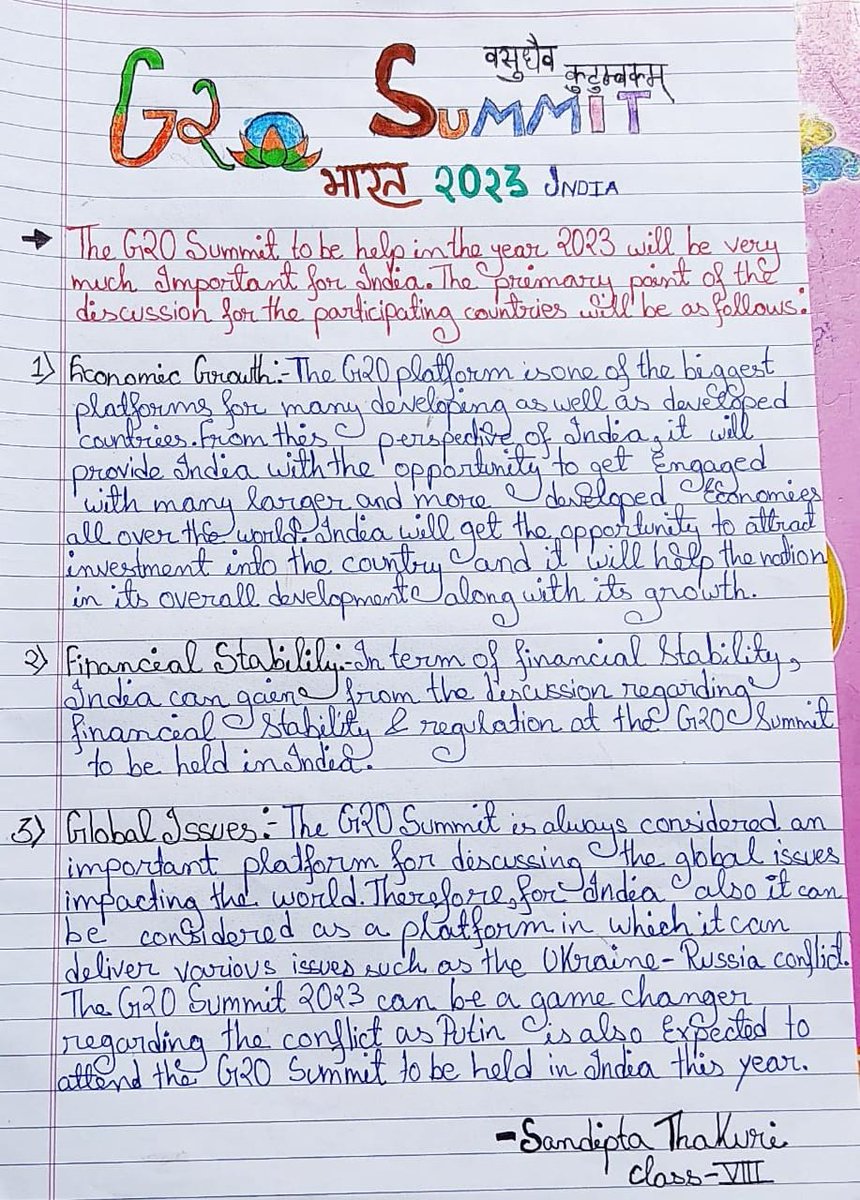 वसुधैव
कुटुम्बकम्
G20 SUMMIT
भारत 2023 INDIA
The G20 Summit to be help in the year 2023 will be very
much Important for India. The primary point of the
discussion for the participating countries will be as follows:
1) Economic Growth:- The G20 platform is one of the biggest
platforms for many developing as well as developed
countries. From this perspective of India, it will
provide India with the opportunity to get Engaged
with many larger and more developed Economies
all over the world. India will get the opportunity to attract
investment into the country and it will help the nation
in its overall development along with its growth.
2) Financial Stability:- In term of financial Stability,
India can gain from the discussion regarding
financial Stability & regulation at the G20 Summit
to be held in India.
3) Global Issues:- The G20 Summit is always considered an
important platform for discussing the global issues
impacting the world. Therefore, for India also it can
be considered as a platform in which it can
deliver various issues such as the Ukraine-Russia conflict.
The G20 Summit 2023 can be a game changer
regarding the conflict as Putin is also Expected to
attend the G20 Summit to be held in India this year.
- Sandipta Thakuri
Class-VIII